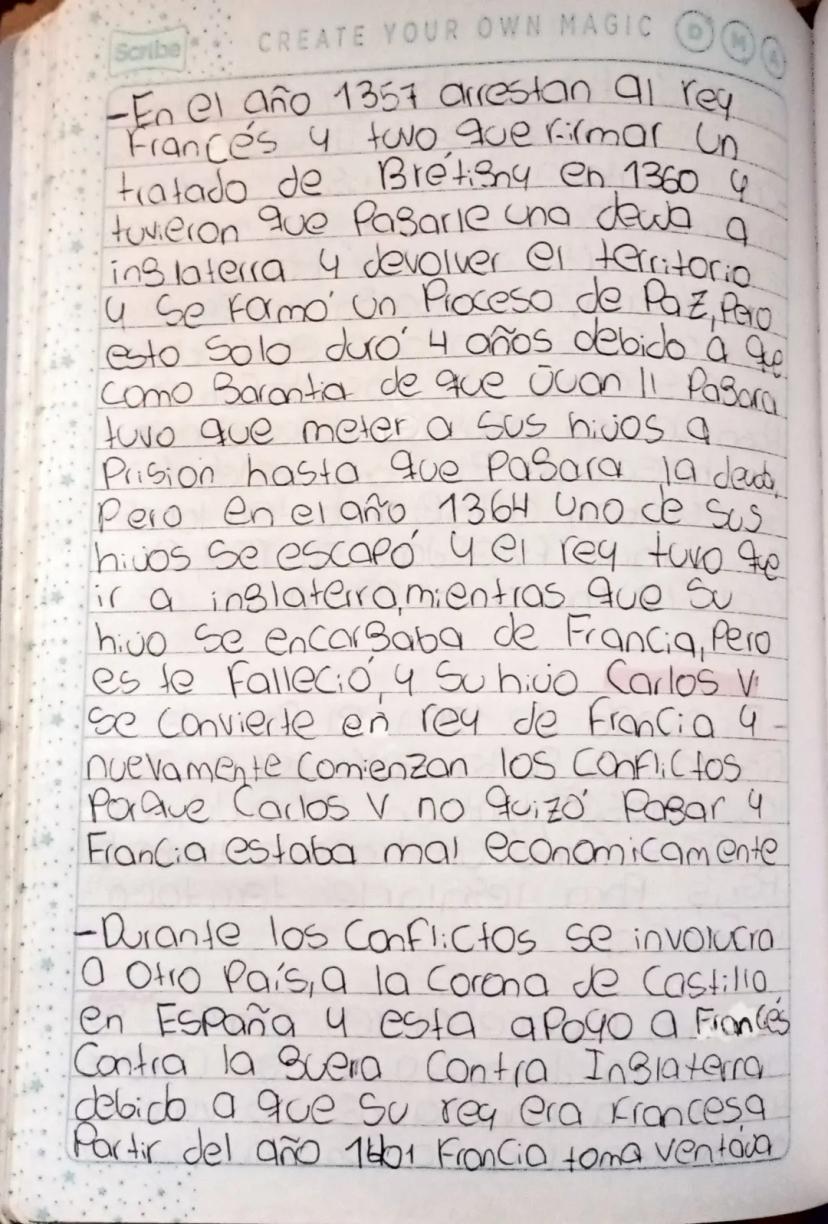 Scribe CREATE YOUR OWN MAGIC D M A
-En el año 1357 arrestan al rey
Francés y tuvo que firmar un
tratado de Brétigny en 1360 y
tuvieron que pagarle una deuda a
inglaterra y devolver el territorio
y se formó un Proceso de Paz, Pero
esto solo duró 4 años debido a que
como garantia de que Juan II Pagara
tuvo que meter a sus hijos a
Prision hasta que Pagara la deuda,
Pero en el año 1364 uno de sus
hijos se escapó y el rey tuvo que
ir a inglaterra, mientras que su
hijo se encargaba de Francia, Pero
es te Falleció, y su hijo Carlos V
se convierte en rey de Francia y
nuevamente comienzan los conflictos
Porque Carlos V no quizó Pagar y
Francia estaba mal economicamente
-Durante los conflictos se involucra
a otro País, a la Corona de Castilla
en España y esta apoyo a Francés
Contra la guerra Contra Inglaterra
debido a que su rey era Francesa
Partir del año 1401 Francia toma ventaja